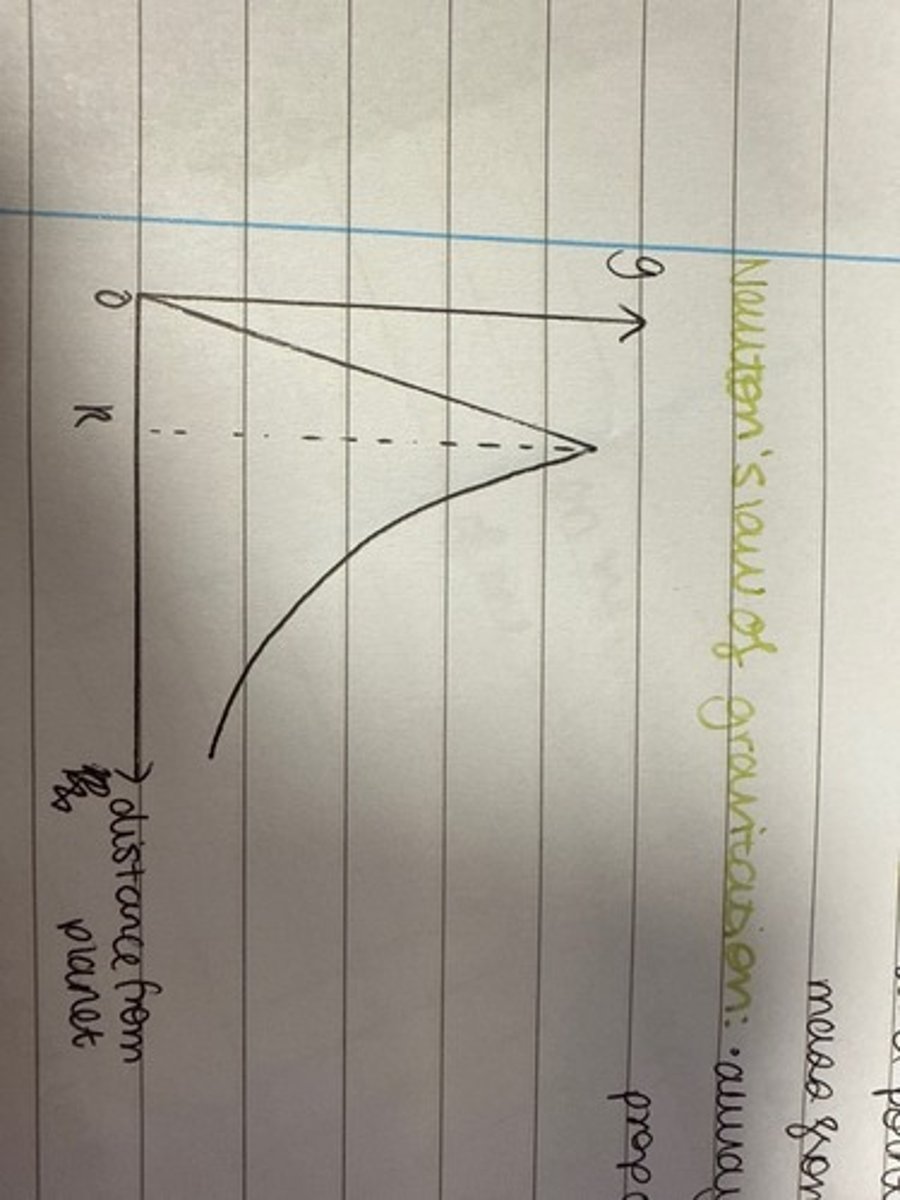 mass from
Newton's law of gravitation: • always
prop
g
O R distance from
planet